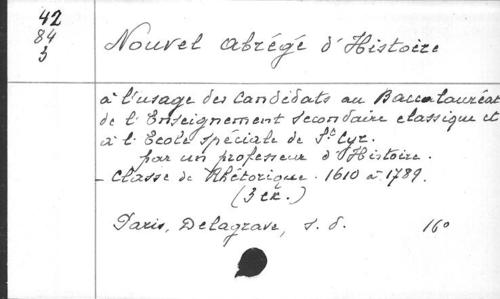 42
84
3
Nouvel Abrégé d'Histoire
à l'usage des Candidats au Baccalauréat
de l'Enseignement secondaire classique et
à l'Ecole spéciale de St Cyr.
par un professeur d'Histoire.
- Classe de Rhétorique. 1610 à 1789.
(3 ex.)
Paris, Delagrave, s. d. 16°